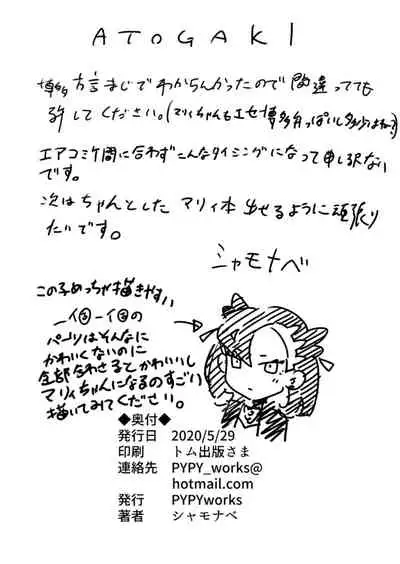 ATOGAKI
博多方言まじでわからんかったので間違ってても
許してください。(マリィちゃんもエセ博多弁っぽいし多分よね?)
エアコミケ間に合わずこんなタイミングになって申し訳ない
です。
次はちゃんとしたマリィ本出せるように頑張り
たいです。
シャモナベ
この子めっちゃ描きやすい
一個一個の
パーツはそんなに
かわいくないのに
全部合わさるとかわいいし
マリィちゃんになるのすごい
描いてみてください。
◆奥付◆
発行日 2020/5/29
印刷 トム出版さま
連絡先 PYPY_works@
hotmail.com
発行 PYPYworks
著者 シャモナベ